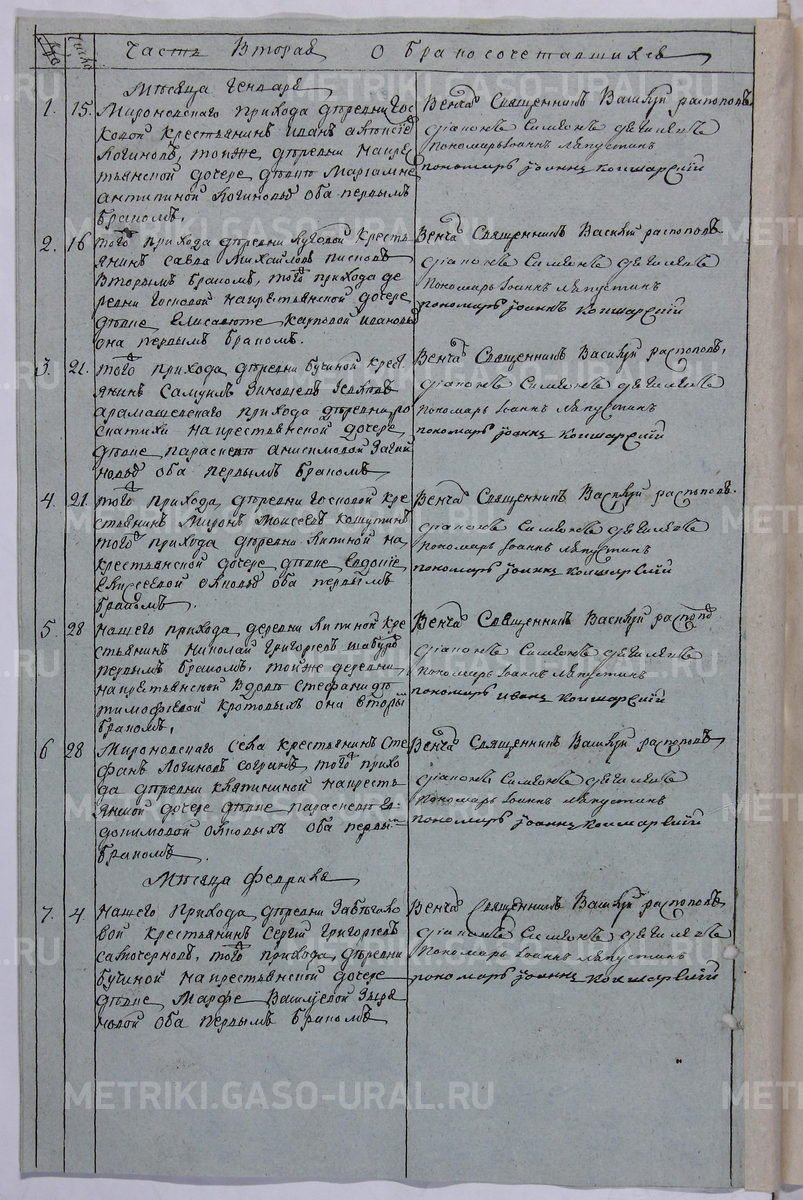 Число
Часть Вторая О Бракосочетавшихся
Месяца Генваря
1. 15. Мироновскаго прихода деревни Гос
ковой крестьянинъ Иванъ
Логиновъ, тойже деревни на кре
стьянской дочере девке Мариамне
Антипиной Логиновых оба первымъ
бракомъ.
Венча Священникъ Василий распоповъ
диаконъ Симеонъ
пономарь Иоаннъ Ляпустинъ
пономарь Иоаннъ Кокшарский
2. 16 того прихода деревни Луговой кресть
янинъ Савва Михайловъ Писковъ
Вторымъ бракомъ, того прихода де
ревни Госковой на крестьянской дочере
девке Елисавете Карповой Ивановых
она первымъ бракомъ.
Венча Священникъ Василий распоповъ
диаконъ Симеонъ
пономарь Иоаннъ Ляпустинъ
пономарь Иоаннъ Кокшарский
3. 21. того прихода, деревни Бучиной крес
янинъ Самуилъ Зиновьевъ
Арамашевскаго прихода деревни ро
скатихи на крестьянской дочере
девке Параскеве Анисимовой
оба первымъ бракомъ
Венча Священникъ Василий распоповъ,
диаконъ Симеонъ
пономарь Иоаннъ Ляпустинъ
пономарь Иоаннъ Кокшарский
4. 21. того прихода, деревни Госковой кре
стьянинъ Миронъ Моисеевъ Кошутинъ
того прихода деревни Липиной на
крестьянской дочере девке Евдокие
Елисеевой оба первымъ
бракомъ.
Венча Священникъ Василий распоповъ.
диаконъ Симеонъ
пономарь Иоаннъ Ляпустинъ
пономарь Иоаннъ Кокшарский
5. 28 нашего прихода деревни Липиной кре
стьянинъ Николай Григорьевъ Шабуровъ
первымъ бракомъ, тойже деревни
на крестьянской Вдове Стефаниде
Тимофеевой Кротовыхъ она вторым
бракомъ.
Венча Священникъ Василий распопов
диаконъ Симеонъ
пономарь Иоаннъ Ляпустинъ
пономарь Иванъ Кокшарский
6 28 Мироновскаго Села крестьянинъ Сте
фанъ Логиновъ того прихо
да деревни на кресть
янской дочере девке Параскеве Ев
докимовой оба первы
бракомъ.
Венча Священникъ Василий распоповъ
диаконъ Симеонъ
пономарь Иоаннъ Ляпустинъ
пономарь Иоаннъ Кокшарский
Месяца Февраля
7. 4. нашего Прихода, деревни Забегало
вой крестьянинъ Сергий Григорьевъ
Самочерновъ, того прихода, деревни
Бучиной на крестьянской дочере
девке Марфе Васильевой Зыря
новой оба первымъ бракомъ
Венча Священникъ Василий распоповъ
диаконъ Симеонъ
пономарь Иоаннъ Ляпустинъ
пономарь Иоаннъ Кокшарский
METRIKI.GASO-URAL.RU